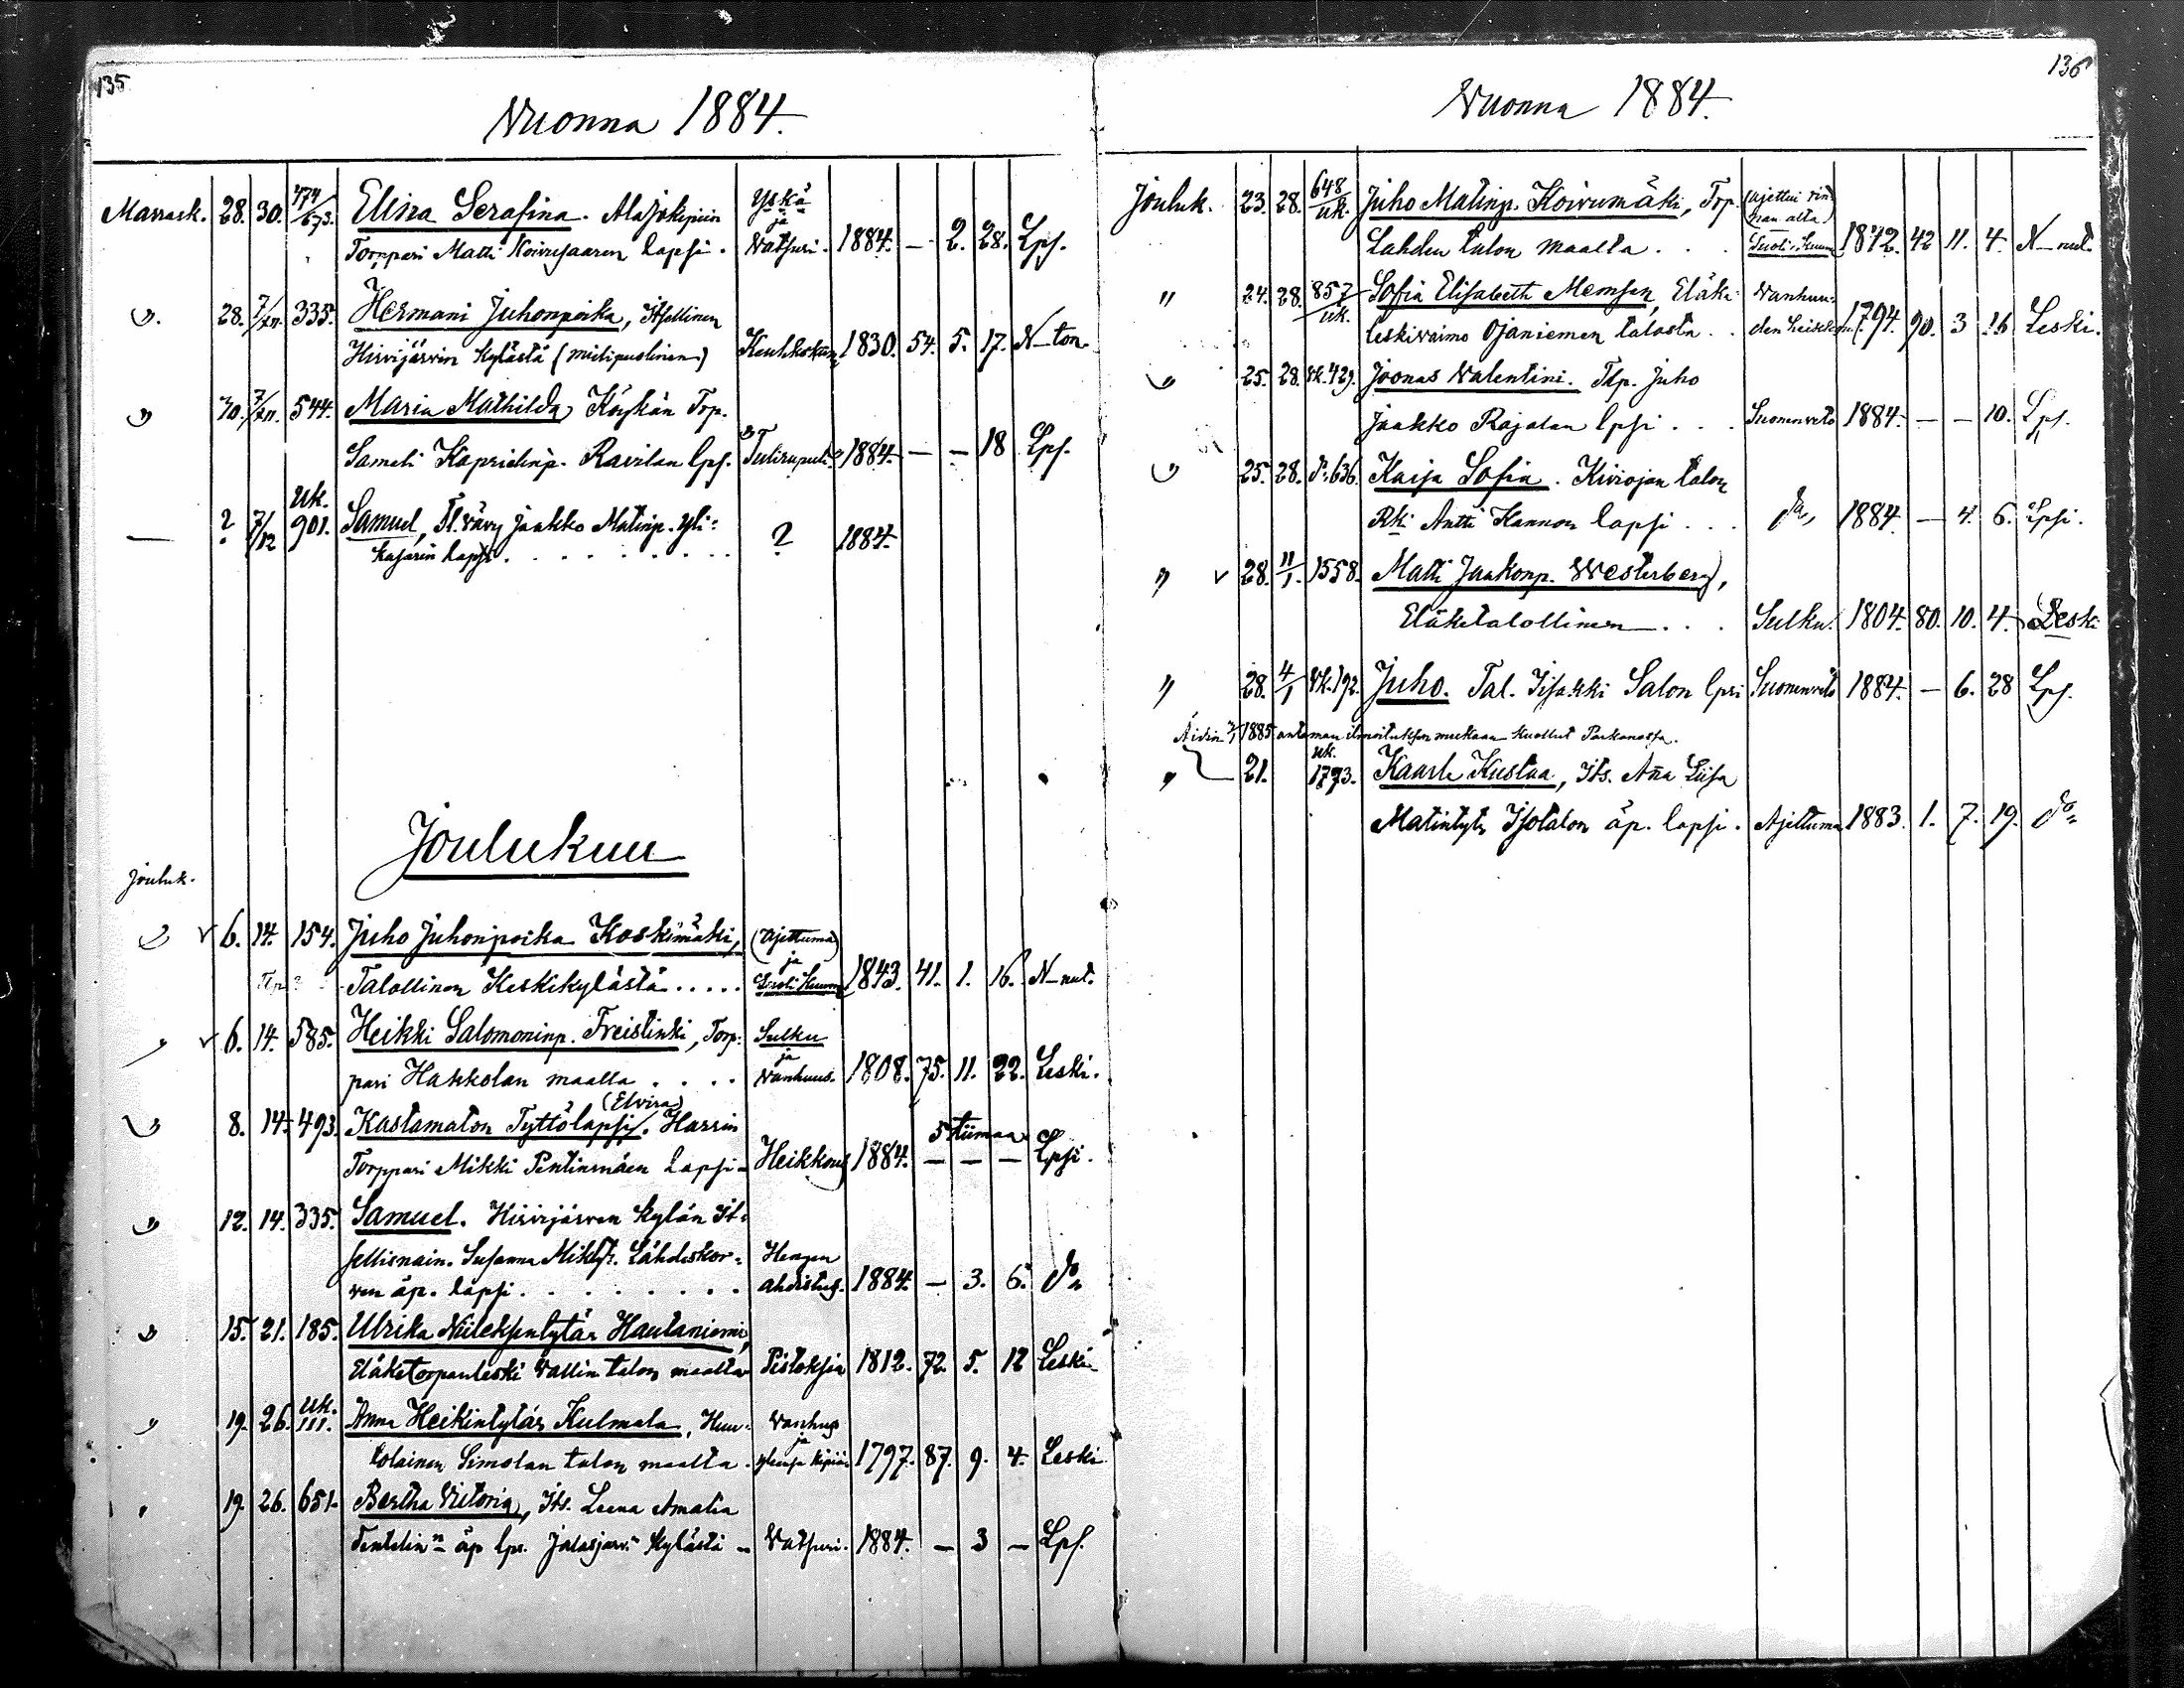 135
Vuonna 1884.
Marrask. 28. 30. 474/673. Elina Serafina. Alajokipiin Yskä ja
Torppari Matti Koivusaaren lapsi. Watsuri. 1884. — 2. 28. Lps.
" 28. 7/XII. 335. Hermani Juhonpoika, Itsellinen
Hirvijärvin kylästä (mielipuolinen) Keuhkokuume 1830. 54. 5. 17. N—ton.
" 30. 7/XII. 544. Maria Mathilda, Köykän Trp.
Sameli Kaprielinp. Ravilan lps. Tulirupuli 1884. — — 18 Lps.
— ? 7/12 uk. 901. Samuel, Tl. vävy Jaakko Matinp. Yli-
kasarin lapsi. ? 1884.
Joulukuu
Jouluk.
" v 6. 14. 154. Juho Juhonpoika Koskimäki, (Ajettuma) ja
Talollinen Keskikylästä ..... 1843. 41. 1. 16. N—nut.
" v 6. 14. 585. Heikki Salomoninp. Freistinki, Torp- Sulku ja
pari Hakkolan maalla .... Vanhuus. 1808. 75. 11. 22. Leski.
(Elvira)
" 8. 14. 493. Kastamaton Tyttölapsi. Harrin 5 tiimaa
Torppari Mikki Pentinmäen lapsi – Heikkous 1884. — — — Lpsi.
" 12. 14. 335. Samuel. Hirvijärven kylän It-
sellisnain. Susanna Mikt. Lähdeskor- Hengen
ven äp. lapsi. ahdistus. 1884. — 3. 6. do
" 15. 21. 185. Ulrika Niileksentytär Hautaniemi,
Eläketorpanleski Vallin talon maalta Pistoksia 1812. 72. 5. 12 Leski
" 19. 26. uk. 111. Anna Heikintytär Kulmala, Huu- Vanhus ja
tolainen Simolan talon maalta. 1797. 87. 9. 4. Leski
" 19. 26. 651. Bertha Vitoria, Its. Leena Amalia
äp lps. Jalasjärv. kylästä – Vatsuri. 1884. — 3 — Lps.
136
Vuonna 1884.
Jouluk. 23. 28. 648/uk. Juho Matinp. Koivumäki, Trp. (Ajettui rin-
nan alta)
Lahden talon maalta ... 1842. 42 11. 4. N—nut.
" 24. 28. 857/uk. Sofia Elisabeth Memsen, Eläke- Vanhuu-
leskivaimo Ojaniemen talosta .. den heikkous 1794. 90. 3 16 Leski.
" 25. 28. uk. 429. Joonas Valentini. Tlp. Juho
Jaakko Rajalan lpsi ... Suonenveto 1884. — — 10. Lps.
" 25. 28. do. 636. Kaisa Sofia. Kiviojan talon
Rki Antti Kannon lapsi ... do 1884 — 4. 6. Lpsi.
" v 28. 11/1. 1558. Matti Jaakonp. Westerberg,
Eläketalollinen ... Sulku. 1804. 80. 10. 4. Leski
" 28. 4/1 uk. 192. Juho. Tal. Iisakki Salon lpsi Suonenveto 1884. — 6. 28 Lps.
Äidin 1885 antaman ilmoituksen mukaan kuollut Parkanossa.
" 21. uk. 1793. Kaarle Kustaa, Its. Aña Liisa
Matintyt. Isotalon äp. lapsi. Ajettuma 1883. 1. 7. 19. do